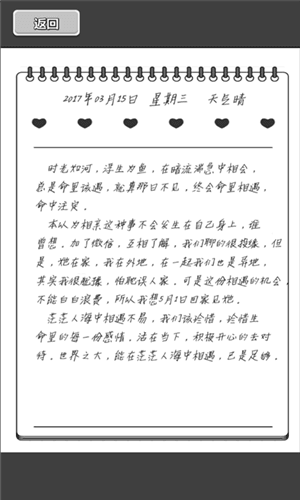 返回
2017年03月15日 星期三 天气晴
时光如河,浮生为鱼,在暗流湍急中相会,
总是命里该遇,就算聊日不见,终会命里相遇,
命中注定。
本以为相亲这种事不会发生在自己身上,谁
曾想,加了微信,互相了解,我们聊的很投缘。但
是,她在家,我在外地,在一起我们也是异地,
其实我很犹豫,怕耽误人家,可是这份相遇的机会,
不能白白浪费,所以我想5月1日回家见她。
茫茫人海中相遇不易,我们该珍惜,珍惜生
命里的每一份感情,活在当下,积极开心的去对
待。世界之大,能在茫茫人海中相遇,已是足够。